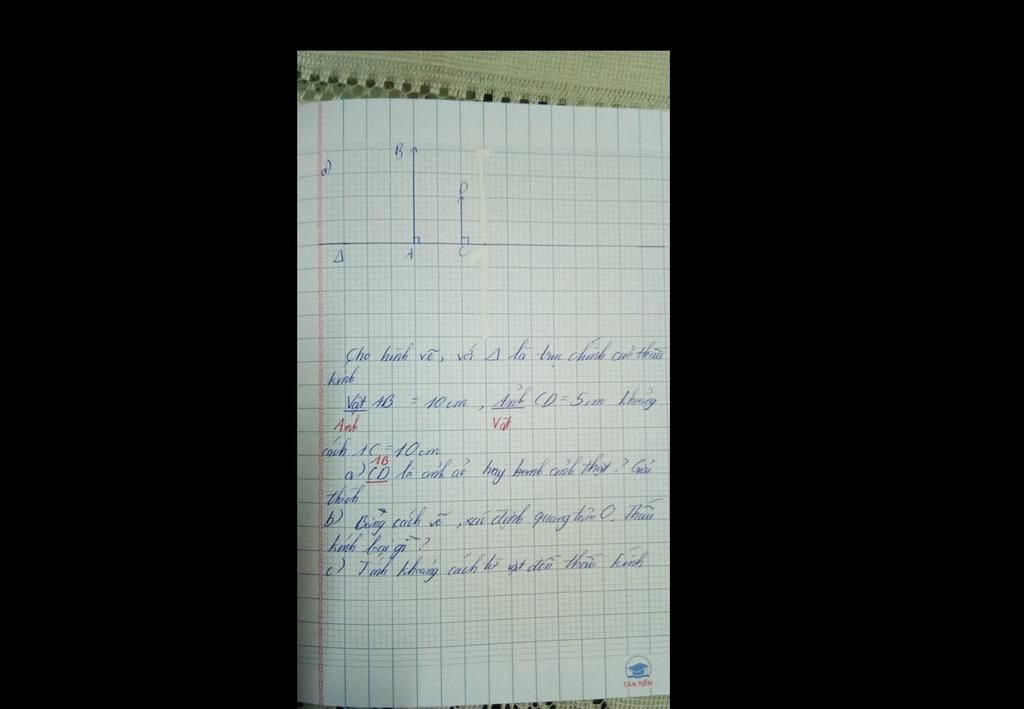 B
a)
D
Δ A C
Cho hình vẽ, với Δ là trục chính của thấu
kính
Vật AB = 10cm, Ảnh CD = 5cm khoảng
Ảnh Vật
cách AC = 10cm
AB
a) CD là ảnh ảo hay ảnh thật? Giải
thích
b) Bằng cách vẽ, xác định quang tâm O. Thấu
kính loại gì?
c) Tính khoảng cách từ vật đến thấu kính
TÂN TIẾN